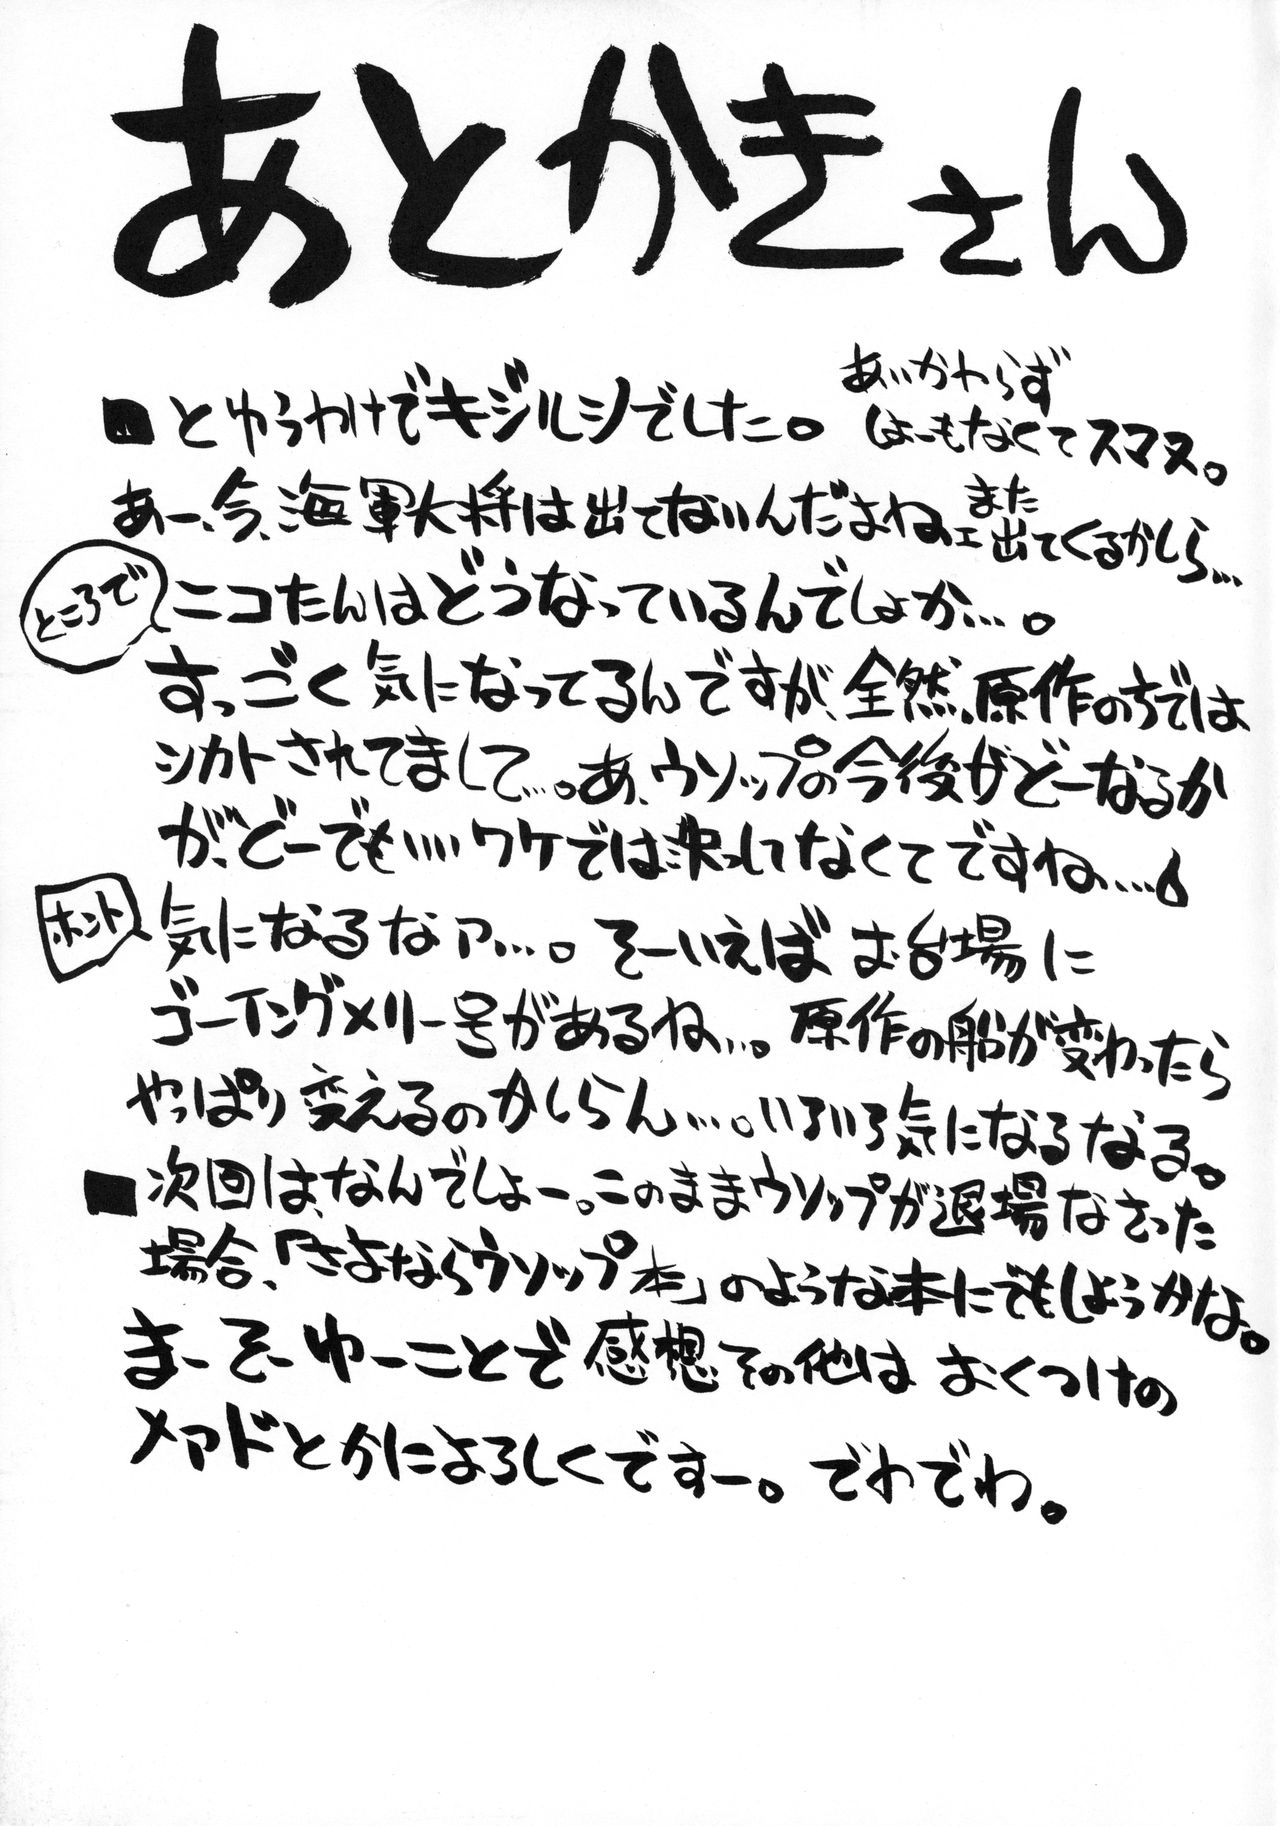 あとかきさん
■とゆうわけでキジルシノでした。 あいかわらず
しょーもなくてスマヌ。
あー、今、海軍大将は出てないんだよねェ また
出てくるかしら…
ところで
ニコたんはどうなっているんでしょか…。
すっごく気になってるんですが、全然、原作のちでは
シカトされてまして…。あ、ウソップの今後がどーなるか
が、どーでもいいワケでは決してなくてですね…。
ホント
気になるなァ…。そーいえばお台場に
ゴーイングメリー号があるね…。原作の船が変わったら
やっぱり変えるのかしらん…。いろいろ気になるなる。
■次回は、なんでしょー。このままウソップが退場なさった
場合、「さよならウソップ本」のような本にでもしようかな。
まーそーゆーことで感想その他は おくつけの
メアドとかによろしくですー。でわでわ。